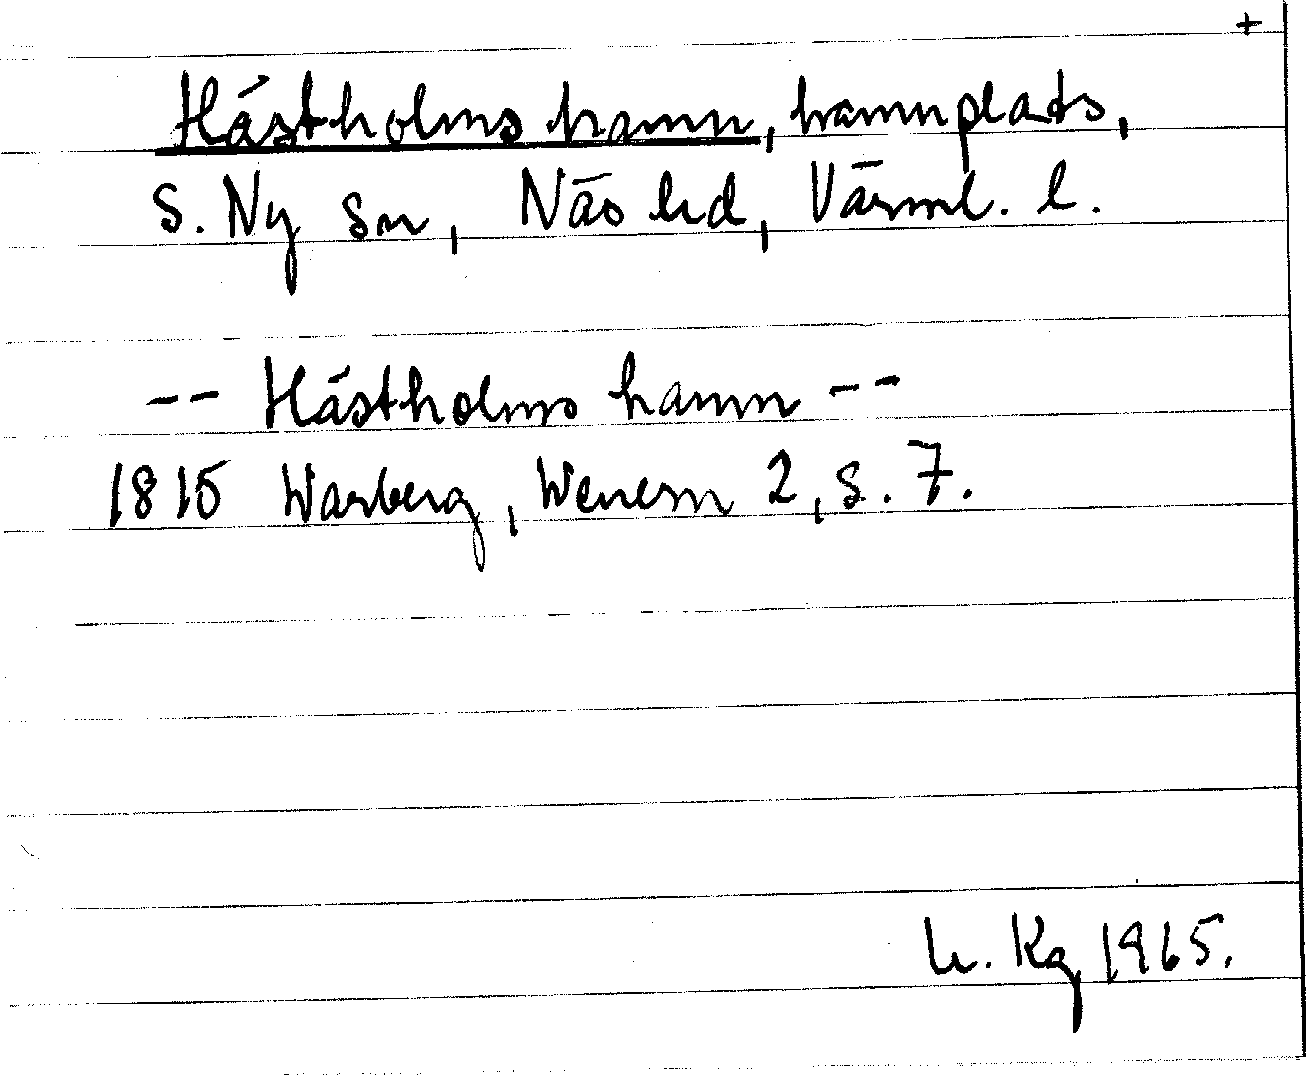 +
Hästholms hamn, hamnplats,
S. Ny sn, Näs hd, Värml. l.
-- Hästholms hamn --
1815 Warberg, Wenern 2, s. 7.
L. Kg 1965.